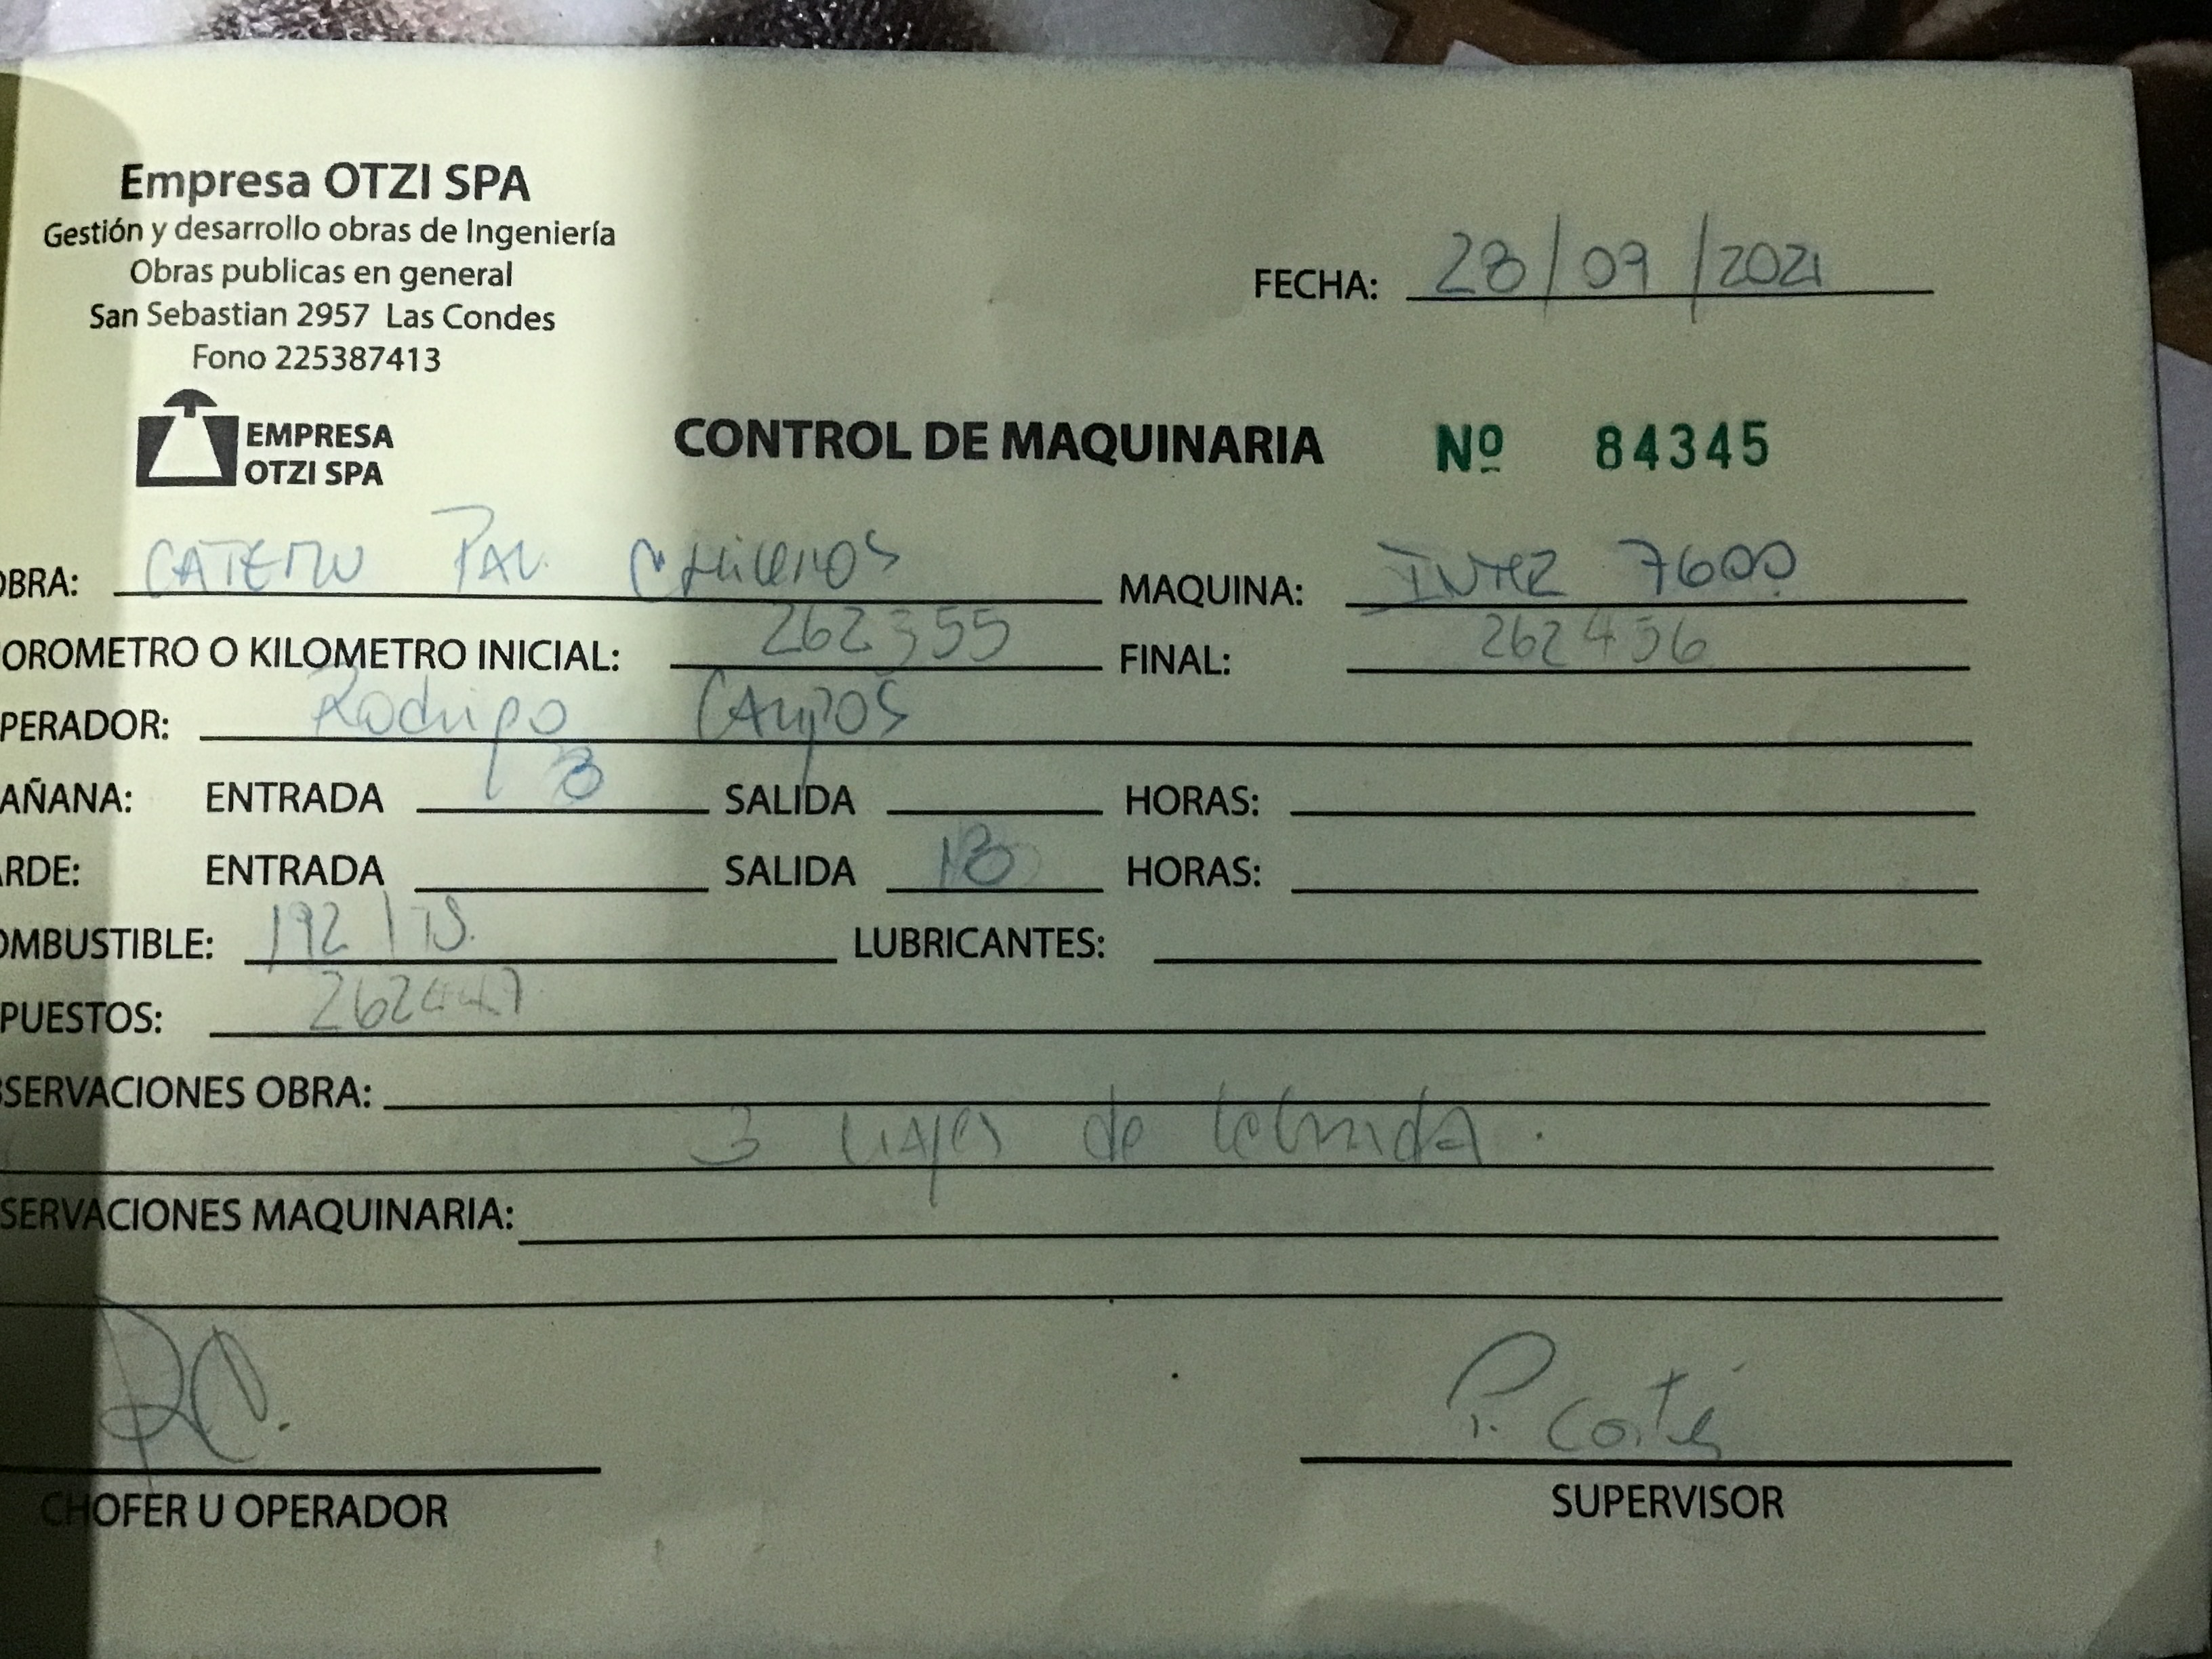 Empresa OTZI SPA
Gestión y desarrollo obras de Ingeniería
Obras publicas en general
San Sebastian 2957 Las Condes
Fono 225387413
FECHA: 28/09/2021
EMPRESA
OTZI SPA
CONTROL DE MAQUINARIA Nº 84345
OBRA: CATEMU PAV. CHILENOS MAQUINA: INTER 7600
OROMETRO O KILOMETRO INICIAL: 262355 FINAL: 262456
PERADOR: Rodrigo CAMPOS
AÑANA: ENTRADA 8 SALIDA HORAS:
ARDE: ENTRADA SALIDA 18 HORAS:
OMBUSTIBLE: 192 lTS. LUBRICANTES:
PUESTOS: 262447
SERVACIONES OBRA:
3 viajes de
SERVACIONES MAQUINARIA:
RC.
P. Cortés
CHOFER U OPERADOR
SUPERVISOR